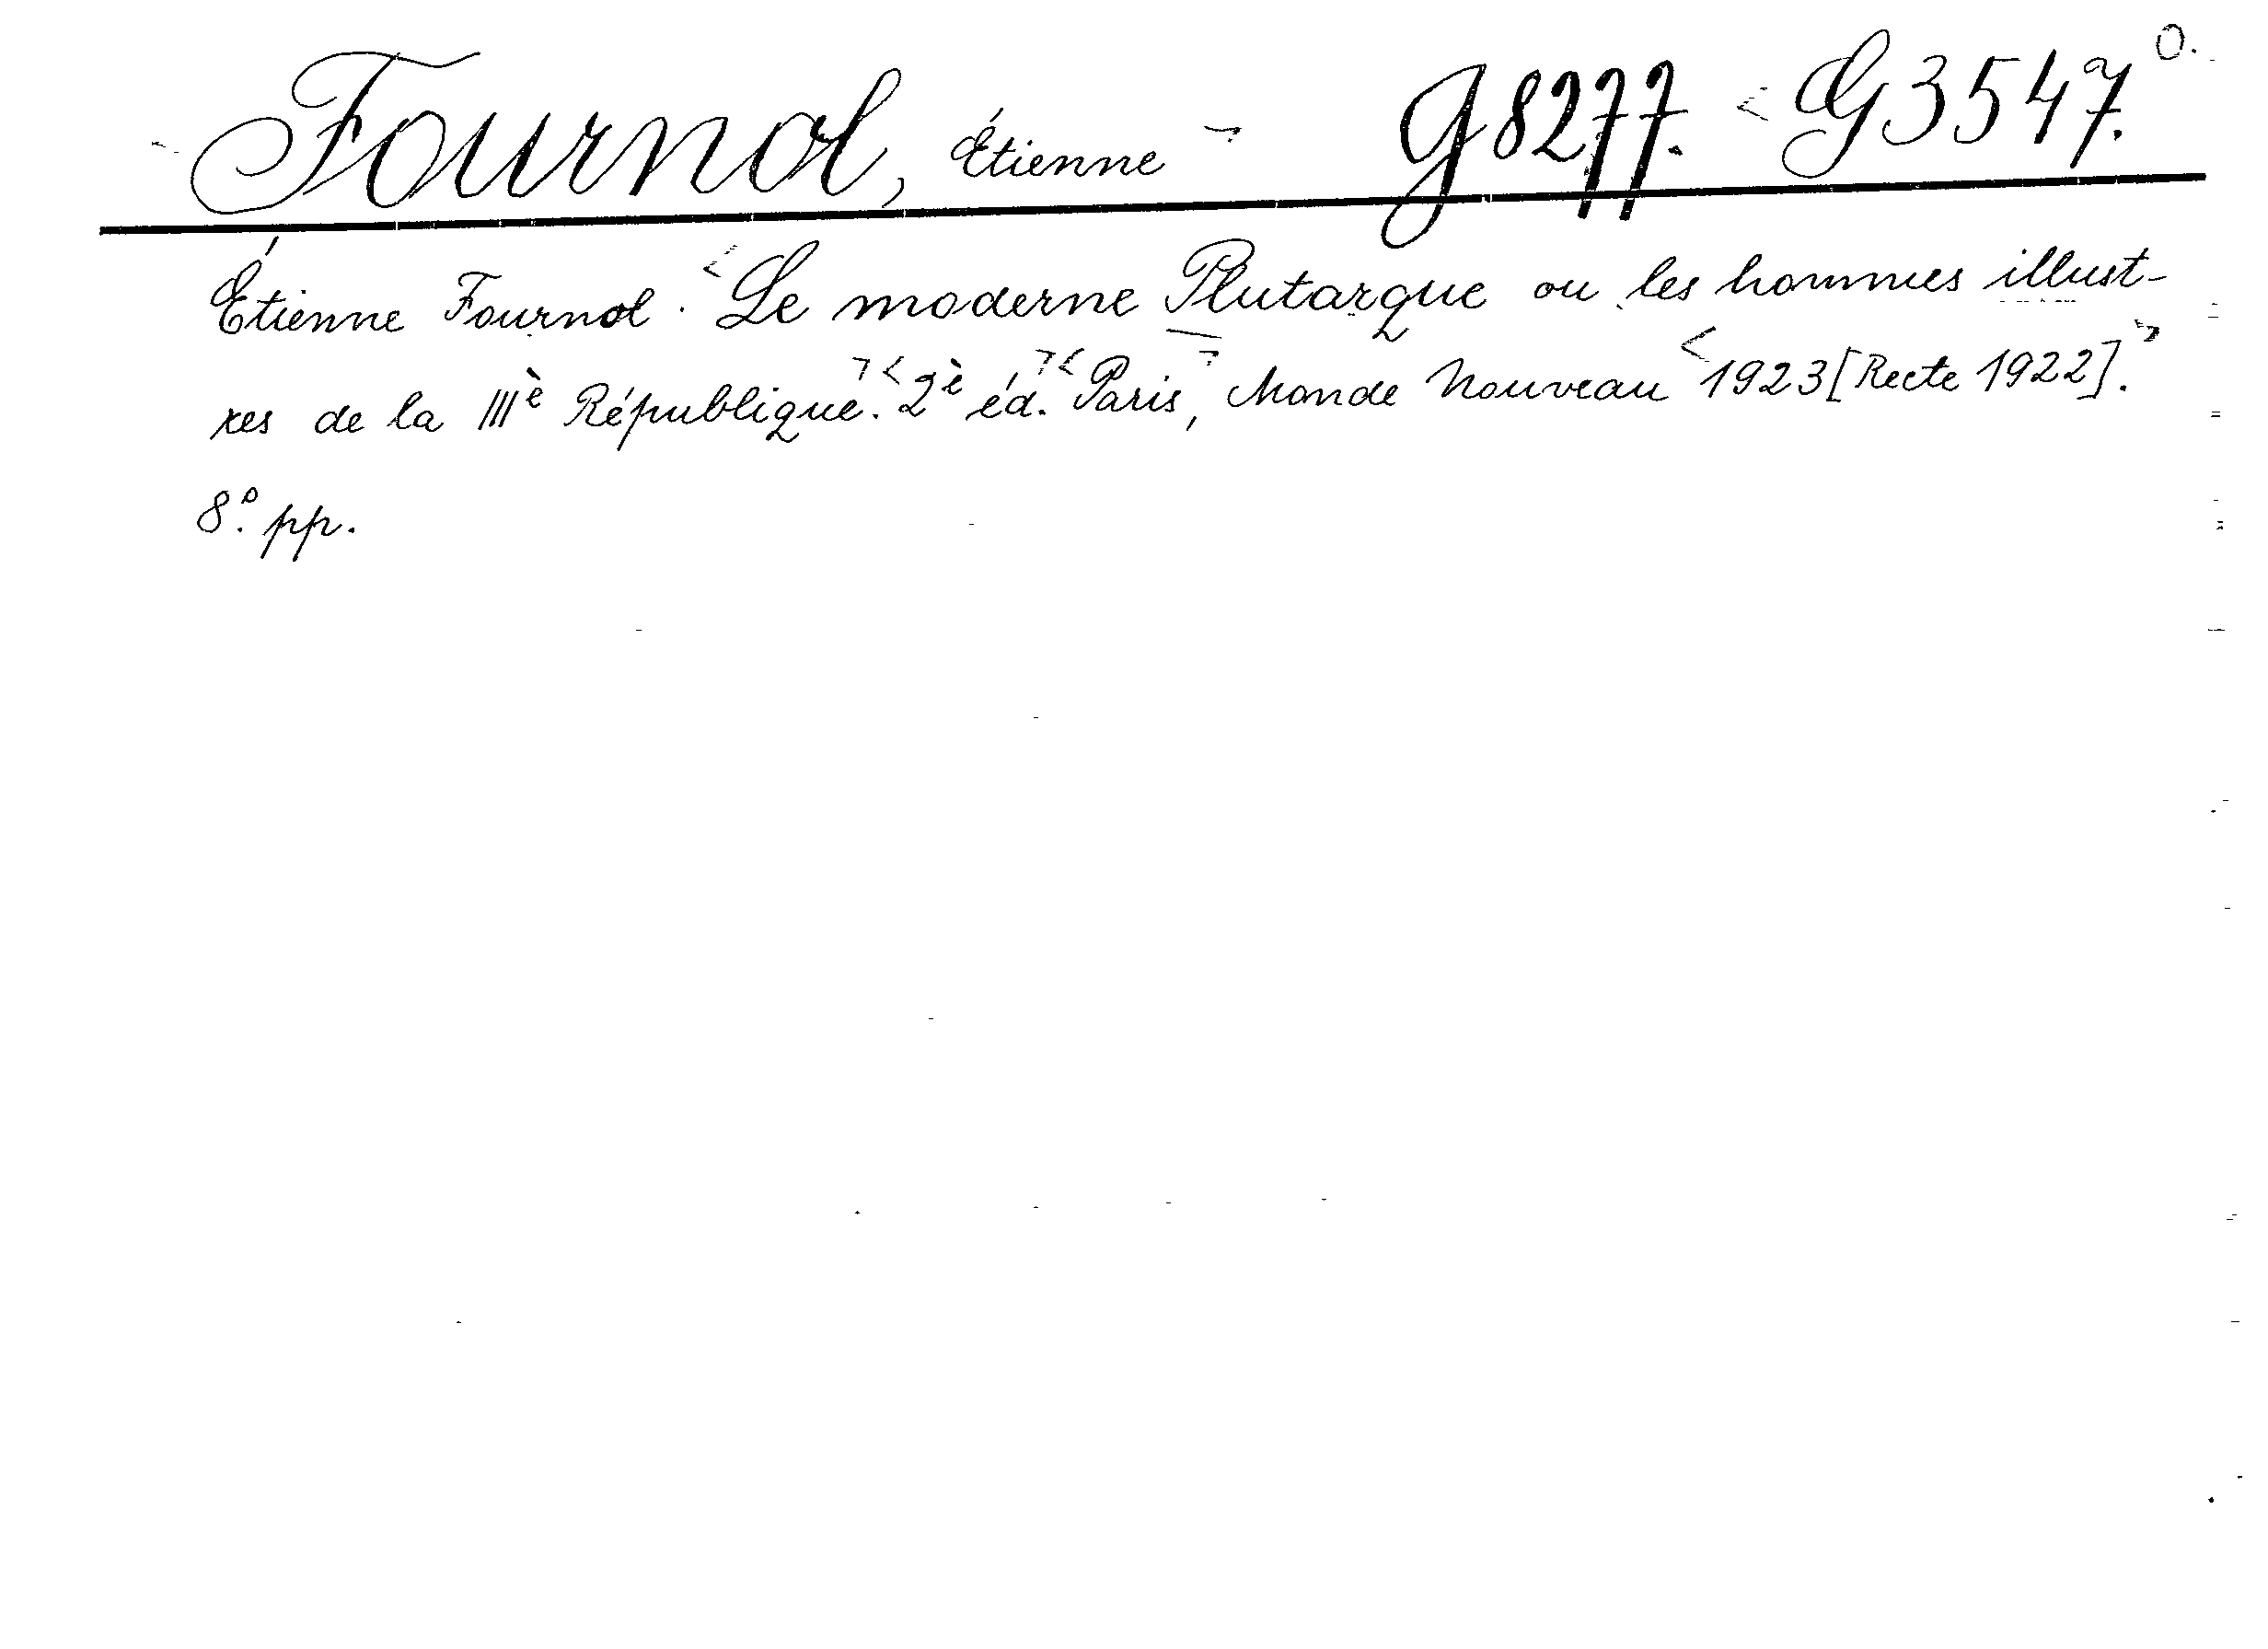 Fournol, Étienne G8277. G3547. O.
Étienne Fournol. Le moderne Plutarque ou les hommes illust-
res de la IIIè République. 2è éd. Paris, Monde Nouveau 1923 [Recte 1922].
8º. pp.